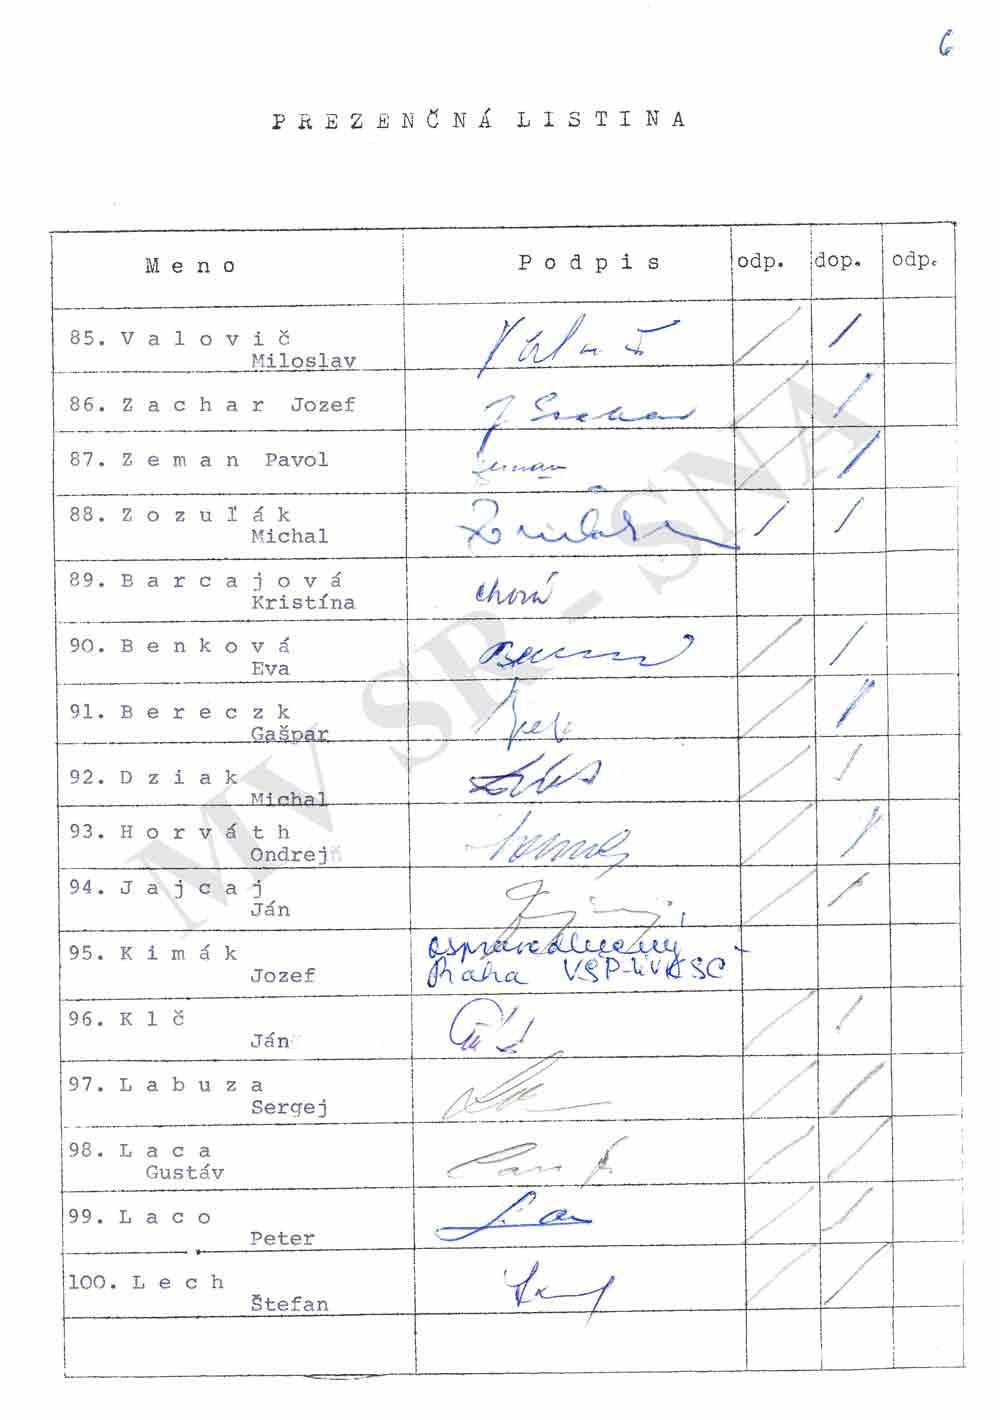 6
PREZENČNÁ LISTINA
Meno Podpis odp. dop. odp.
85. Valovič
Miloslav
86. Zachar Jozef
87. Zeman Pavol
Zeman
88. Zozuľák
Michal
89. Barcajová
Kristína
chorá
90. Benková
Eva
91. Bereczk
Gašpar
92. Dziak
Michal
93. Horváth
Ondrej
94. Jajcaj
Ján
95. Kimák
Jozef
ospravedlnený
Praha VSP-ÚV KSČ
96. Klč
Ján
97. Labuza
Sergej
98. Laca
Gustáv
99. Laco
Peter
100. Lech
Štefan
MV SR - SNA